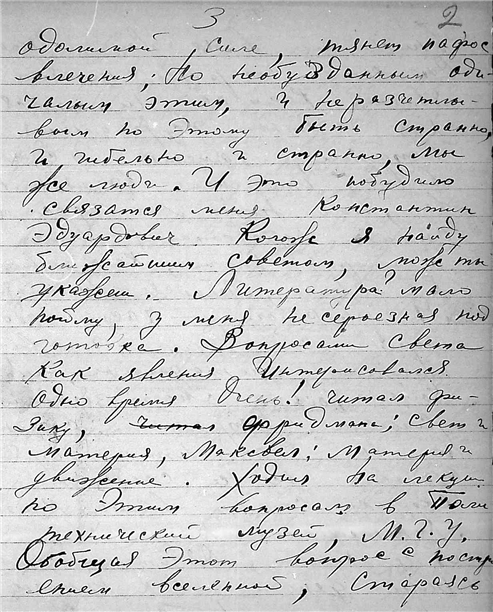 3 2
одолимой силе, тянет пафос
влечения; Но необузданным оди
чалым этим, и неразчетли-
вым по этому быть странно,
и гибельно и странно, мы
же люди. И это побудило
связатся меня Константин
Эдуардович Когож я найду
ближайшим советом, может ты
укажеш. Литература мало
пойму, у меня не сероезная под
готовка. Вопросами света
как явления интерисовался
одно время Очень! читал фи-
зику, читал фридмана; свет и
материя, Максвел; Материя и
движение. Ходил на лекции
по Этим вопросам в Поли
технический музей, М.Г.У.
Обобщая Этот вопрос с постр
ением вселенной, стараясь